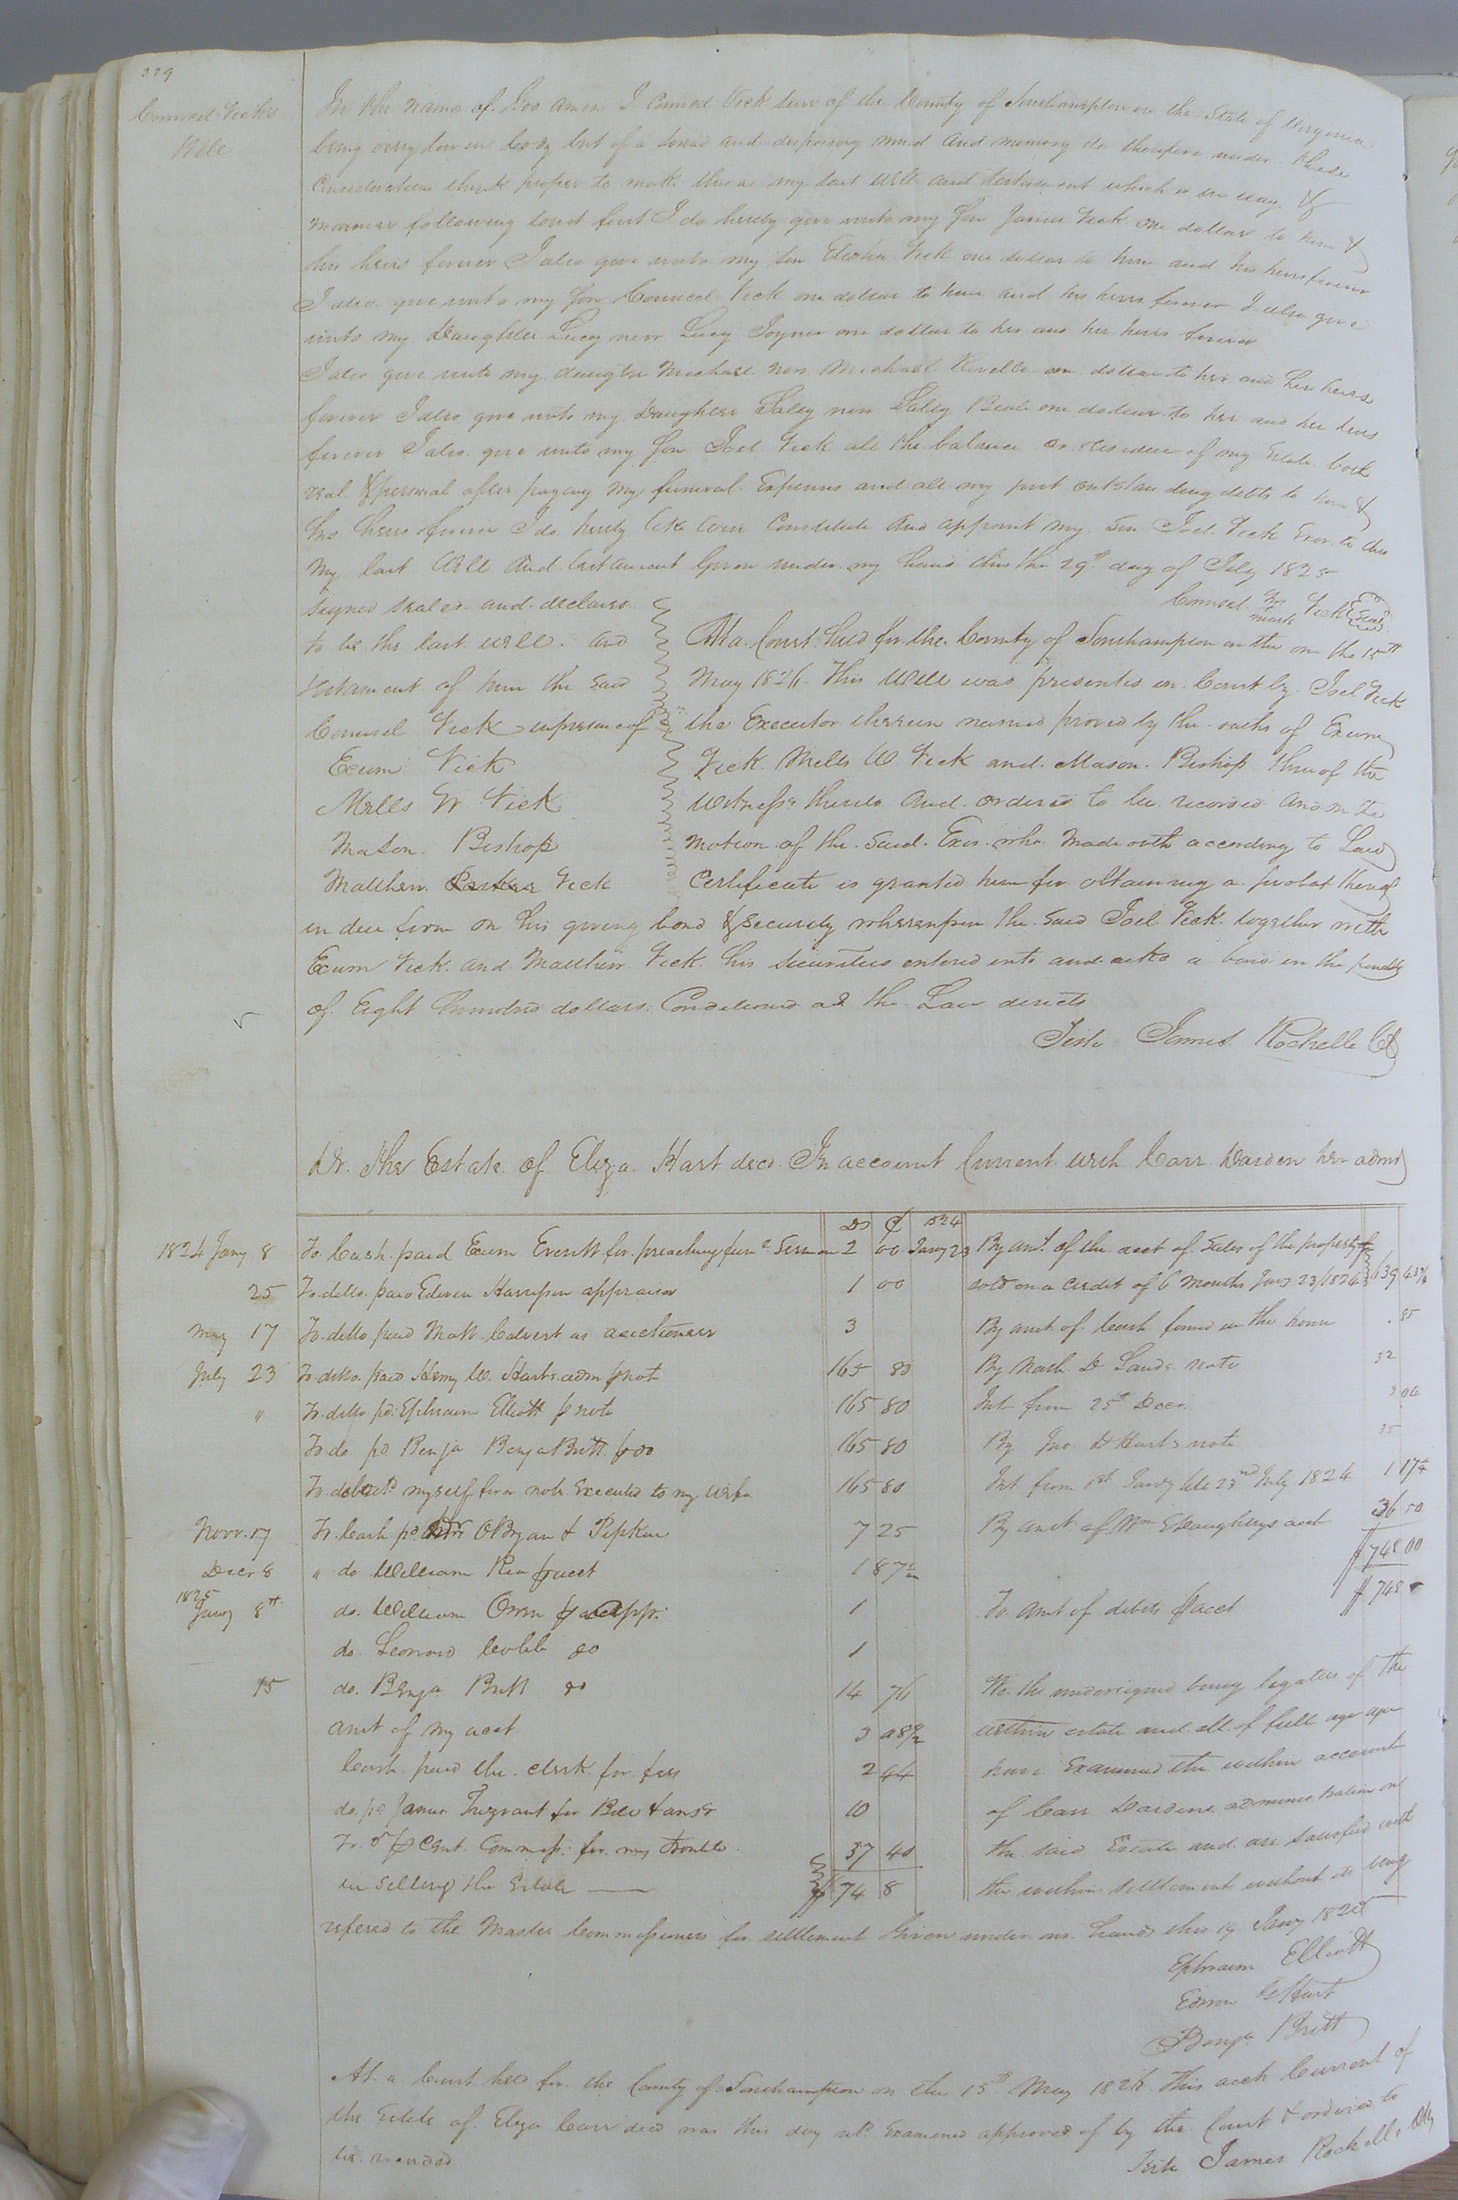 329
Councel Vicks
Will
In the name of God amen I Councel Vick Senr of the County of Southampton in the State of Virginia
being very low in body but of a sound and disposing mind and memory do therefore under these
Considerations think proper to make this as my last Will and testament which is in way &
manner following towit first I do hereby give unto my Son James Vick one dollar to him &
his heirs forever I also give unto my Son Elisha Vick one dollar to him and his heirs forever
I also give unto my Son Councel Vick one dollar to him and his heirs forever I also give
unto my Daughter Lucy now Lucy Joyner one dollar to her and her heirs forever
I also give unto my daughter Michael now Michael Revelle one dollar to her and her heirs
forever I also give unto my Daughter Saley now Saley Beale one dollar to her and her heirs
forever I also give unto my Son Joel Vick all the balance or residue of my Estate both
real & personal after paying my funeral Expenses and all my just outstanding debts to him &
his heirs forever I do hereby likewise Constitute and appoint my Son Joel Vick Exor to this
My last Will and testament Given under my hand this the 29th day of July 1825
Councel his mark Vick Seal
Signed Sealed and declared
to be the last will and
testament of him the said
Councel Vick in presence of
Exum Vick
Mills W Vick
Mason Bishop
Matthew Vick
At a Court held for the County of Southampton on the 15th
May 1826 This Will was presented in Court by Joel Vick
the Executor therein named proved by the oaths of Exum
Vick Mills W. Vick and Mason Bishop three of the
Witness's thereto and ordered to be recorded and on the
motion of the said Exor who made oath according to Law
Certificate is granted him for obtaining a probat thereof
in due form on his giving bond & security whereupon the said Joel Vick together with
Exum Vick and Matthew Vick his securities entered into and ackd a bond in the penalty
of Eight hundred dollars Conditioned as the Law directs
Teste James Rochelle Ct
Dr. The Estate of Eliza Hart decd In account Current with Carr Darden her admr
Ds ₵ 1824
1824 Jany 8 To Cash paid Exum Everitt for preaching funl Sermon 2 00 Jany 23 By amt of the acct of Sales of the property
25 To ditto paid Edwin Harrison appraiser 1 00 sold on a Credit of 6 months Jany 23/1824 639 43½
May 17 To ditto paid Matt Calvert as auctioneer 3 By amt of Cash found in the house . 85
July 23 To ditto paid Henry W. Harts admr p note 165 80 By Nath D Sands note 32
" To ditto pd Ephraim Elliott p note 165 80 Int from 25th Decr
To do pd Benja Benja Britt p do 165 80 By Jno D Harts note 35
To debt myself for a note Executed to my wife 165 80 Int from 1st Jany till 23rd July 1824 1 17½
Novr 17 To Cash pd OBryan & Pipkin 7 25 By amt of Wm E Daughtreys acct 36 50
Decr 8 " do William Rea p acct 1 87½ $ 748 00
1825
Jany 8th do. William Orren p appr. 1 To amt of debits p acct $ 748
do. Leonard Cobb do 1
15 do. Benja Britt do 14 76 We the undersigned being legatees of the
amt of my acct 3 08½ within estate and all of full age
Cash paid the clerk for fees 2 44 have Examined the within account
do pd James Trezvant for Bill & ansr 10 of Carr Dardens administration on
To 5 p Cent Commss: for my trouble 37 40 the said Estate and are satisfied with
in selling the Estate $ 74 8 the within settlement without its being
refered to the Master Commissioners for settlement Given under our hands this 19 Jany 1825
Ephraim Elliott
Edwin G Hart
Benja Britt
At a Court held for the County of Southampton on the 15th May 1826 This acct Current of
the Estate of Eliza Carr decd was this day retd Examined approved of by the Court & ordered to
be recorded
Teste James Rochelle Clk